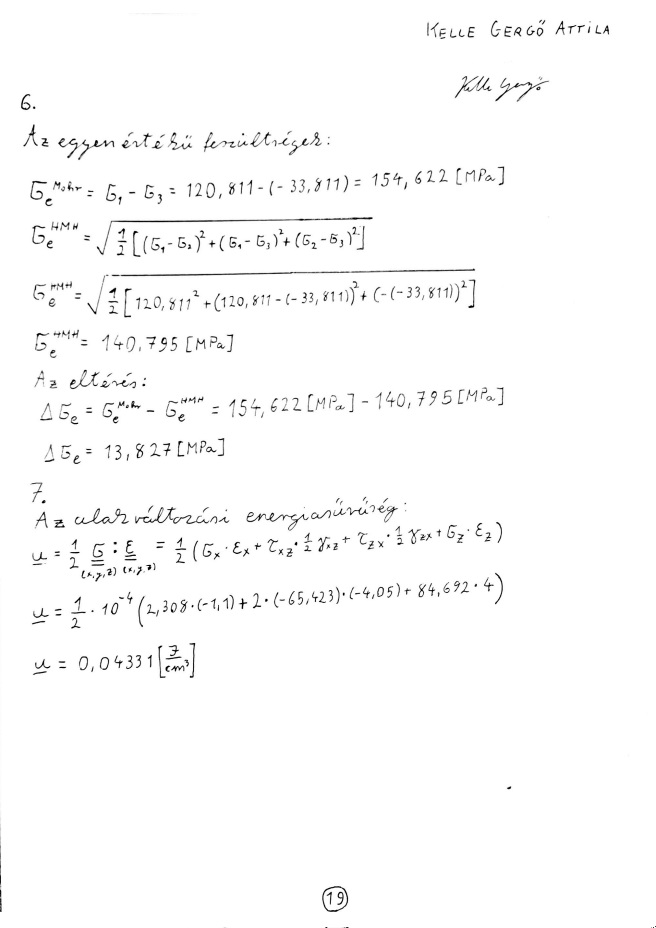 KELLE GERGŐ ATTILA
Kelle Gergő
6.
Az egyenértékű feszültségek:
σₑᴹᵒʰʳ = σ₁ - σ₃ = 120,811 - (- 33,811) = 154,622 [MPa]
σₑᴴᴹᴴ = √(1/2 [(σ₁ - σ₂)² + (σ₁ - σ₃)² + (σ₂ - σ₃)²])
σₑᴴᴹᴴ = √(1/2 [120,811² + (120,811 - (-33,811))² + (-(-33,811))²])
σₑᴴᴹᴴ = 140,795 [MPa]
Az eltérés:
Δσₑ = σₑᴹᵒʰʳ - σₑᴴᴹᴴ = 154,622 [MPa] - 140,795 [MPa]
Δσₑ = 13,827 [MPa]
7.
Az alakváltozási energiasűrűség:
u = 1/2 σ : ε = 1/2 (σx · εx + τxz · 1/2 γxz + τzx · 1/2 γzx + σz · εz)
(x,y,z) (x,y,z)
u = 1/2 · 10⁻⁴ (2,308 · (-1,1) + 2 · (-65,423) · (-4,05) + 84,692 · 4)
u = 0,04331 [J/cm³]
19